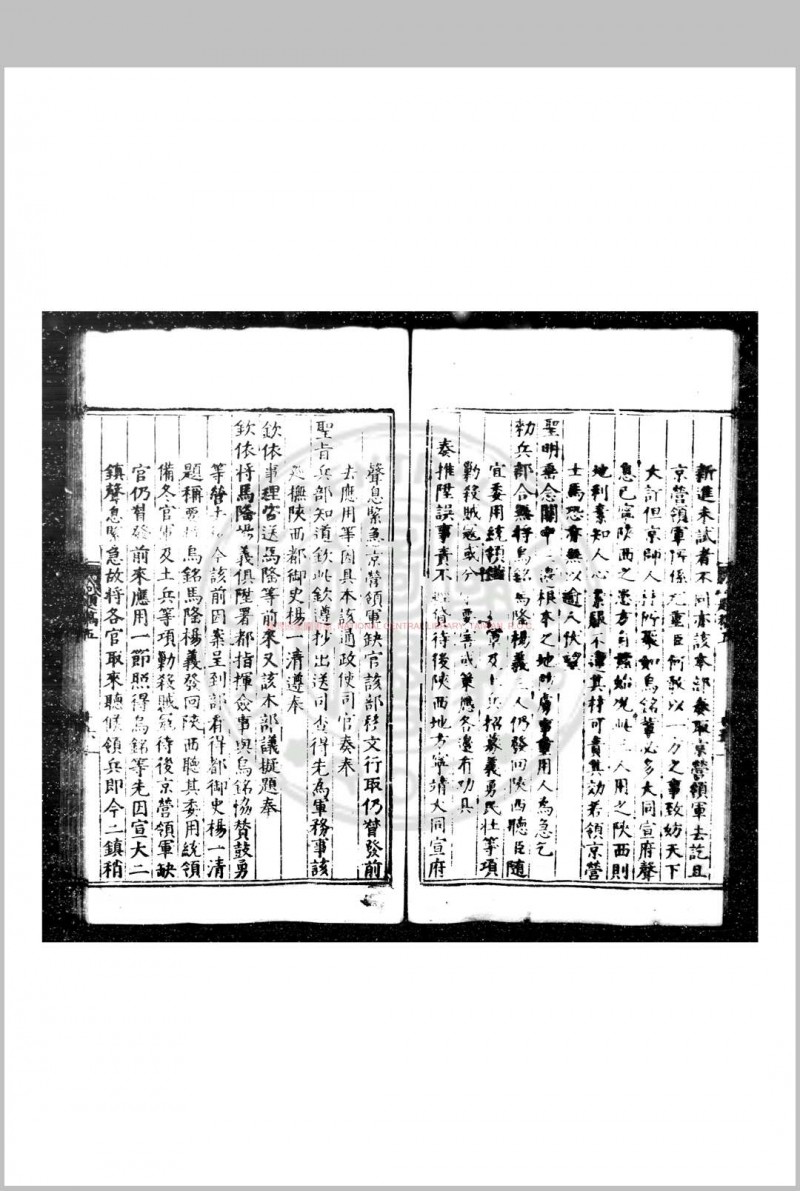 新進未試者不同亦該本部奏取京營領軍去訖且
京營領軍所係尤重臣何敢以一方之事致妨天下
大計但京師人材所聚如烏銘輩必多大同宣府聲
息已寧陝西之患方自茲始況此三人用之陝西則
地利素知人心素服不違其材可責其効若領京營
士馬恐亦無以逾人伏望
聖明乘念關中根本之地用人為急乞
勑兵部合無將烏銘馬隆楊義三人仍發回陝西聽臣隨
宜委用統領營及土兵招募義勇民壯等項
勦殺賊寇或分要害或策應各邊有功具
奏推陞誤事責不輕貸待後陝西地方寧靖大同宣府
聲息緊急京營領軍缺官該部移文行取仍督發前
去應用等因具本該通政使司官奏奉
聖旨兵部知道欽此欽遵抄出送司查得先為軍務事該
巡撫陝西都御史楊一清遵奉
欽依事理咨送馬隆等前來又該本部議擬題奉
欽依將馬隆楊義俱陞署都指揮僉事與烏銘協贊鼓勇
等營今該前因案呈到部看得都御史楊一清
題稱要將烏銘馬隆楊義發回陝西聽其委用統領
備冬官軍及土兵等項勦殺賊寇待後京營領軍缺
官仍督發前來應用一節照得烏銘等先因宣大二
鎮聲息緊急故將各官取來聽候領兵即今二鎮稍